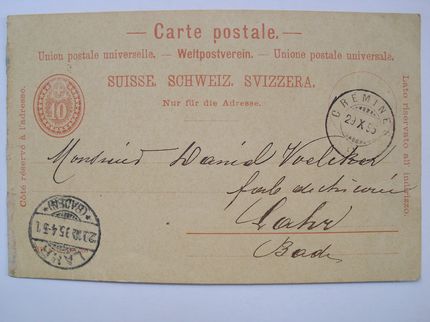 Carte postale.
Union postale universelle. — Weltpostverein. — Unione postale universale.
SUISSE. SCHWEIZ. SVIZZERA.
Nur für die Adresse.
Côté réservé à l'adresse.
10
Lato riservato all' indirizzo.
CREMINES
Monsieur Daniel Voelcker
Lahr
Bade
LAHR
(BADEN)